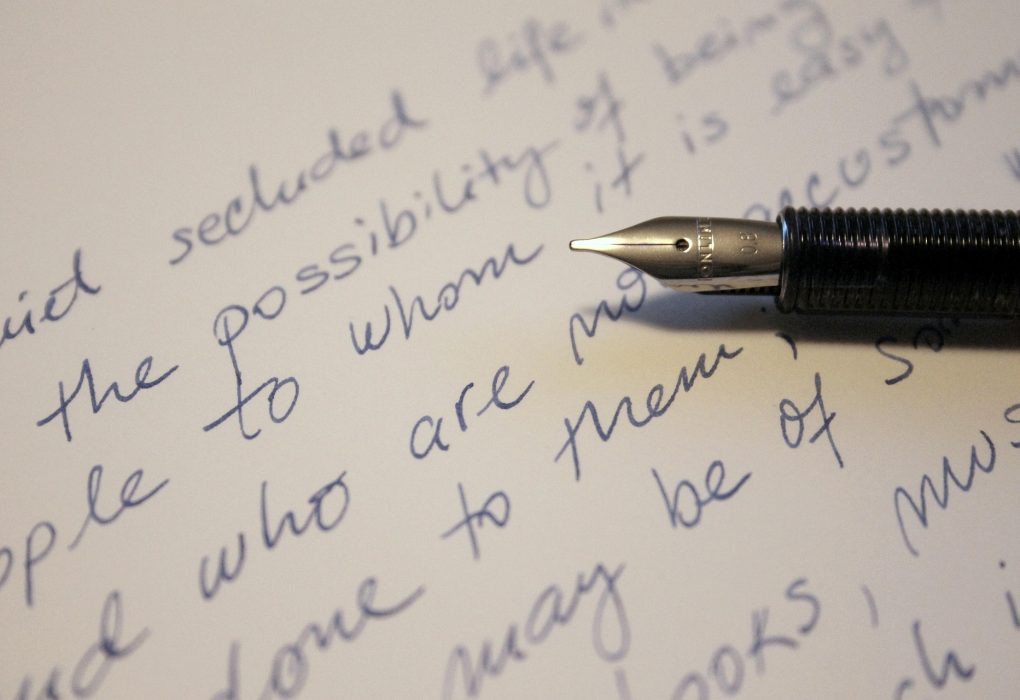 uiet secluded life in
the possibility of being
ople to whom it is easy t
nd who are no accustom
done to them ;
may be of so
ooks, mus
ch i
ONLINE
0.8